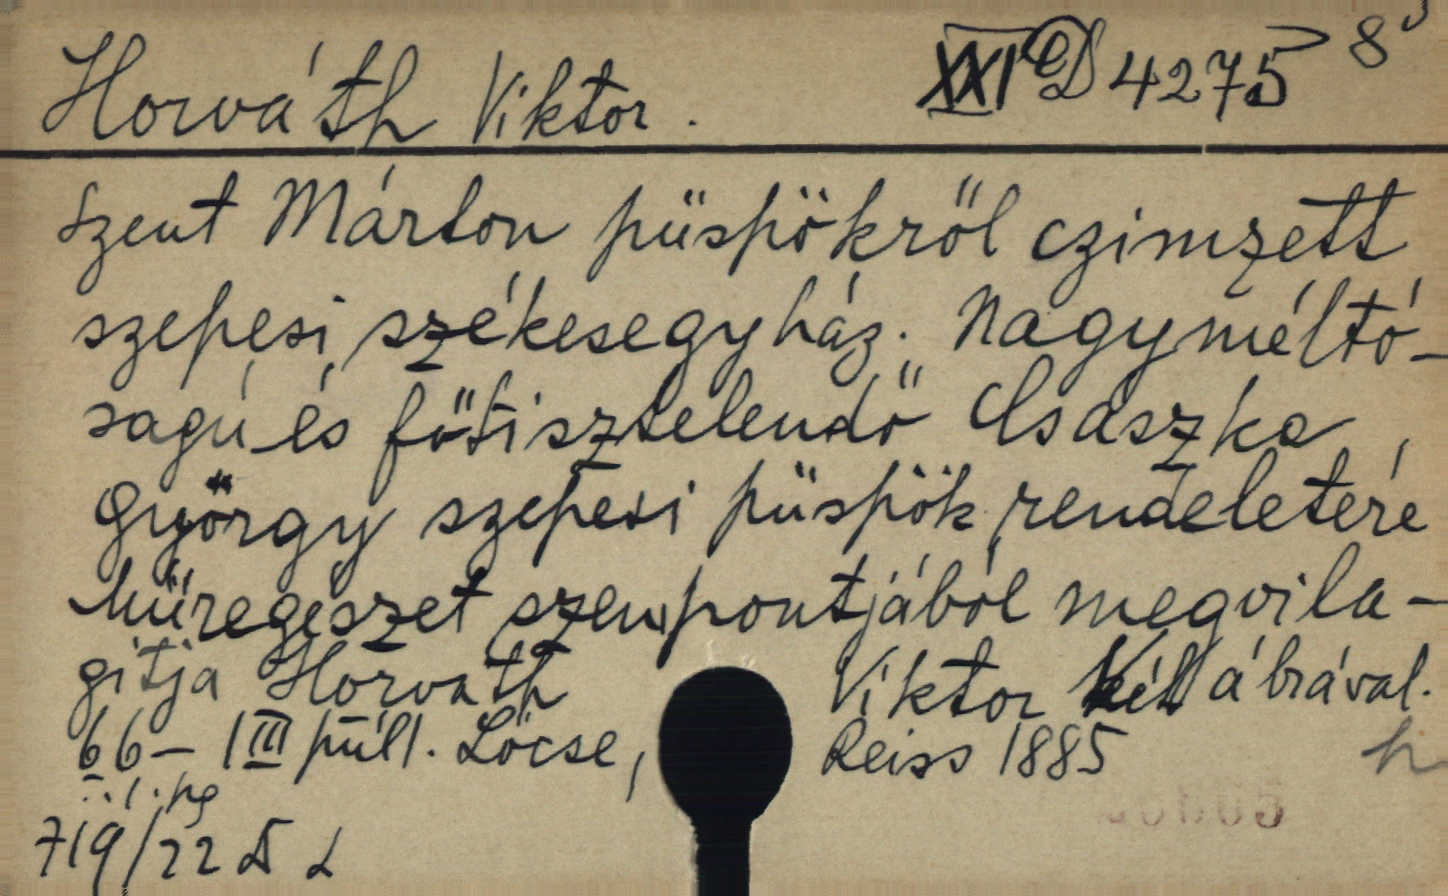 Horváth Viktor. XXI D 4275 8°
Szent Márton püspökről czimzett
szepesi székesegyház. Nagyméltó-
ságú és főtisztelendő Csaszka
György szepesi püspök rendeletére
műrégészet szempontjából megvila-
gitja Horvath Viktor Két ábrával.
66- III Lőcse, Reiss 1885
719/22